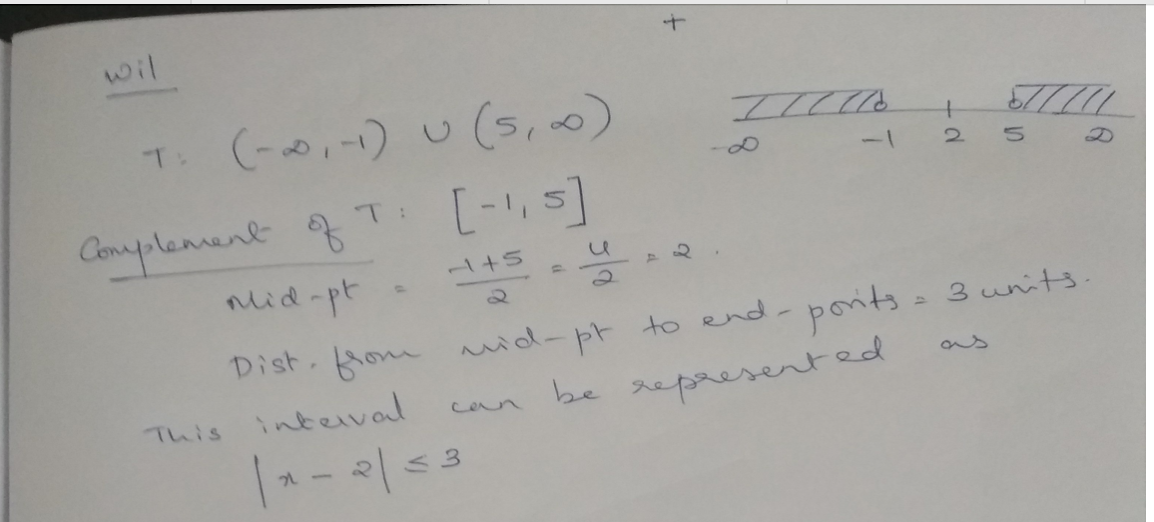 +
Wil
T: (-∞, -1) ∪ (5, ∞)
-∞ -1 2 5 ∞
Complement of T: [-1, 5]
Mid-pt = -1+5/2 = 4/2 = 2.
Dist. from mid-pt to end-points = 3 units.
This interval can be represented as
|x - 2| ≤ 3